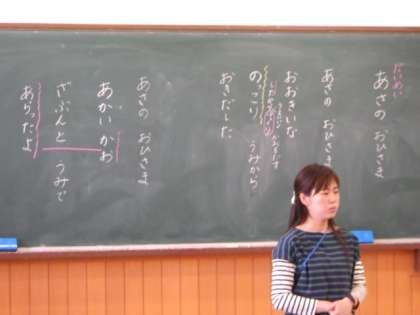 だいめい
あさの おひさま
あさの おひさま
おおきいな
のっこり うみから
おきだした
あさの おひさま
あかい かお
ざぶんと うみで
あらったよ